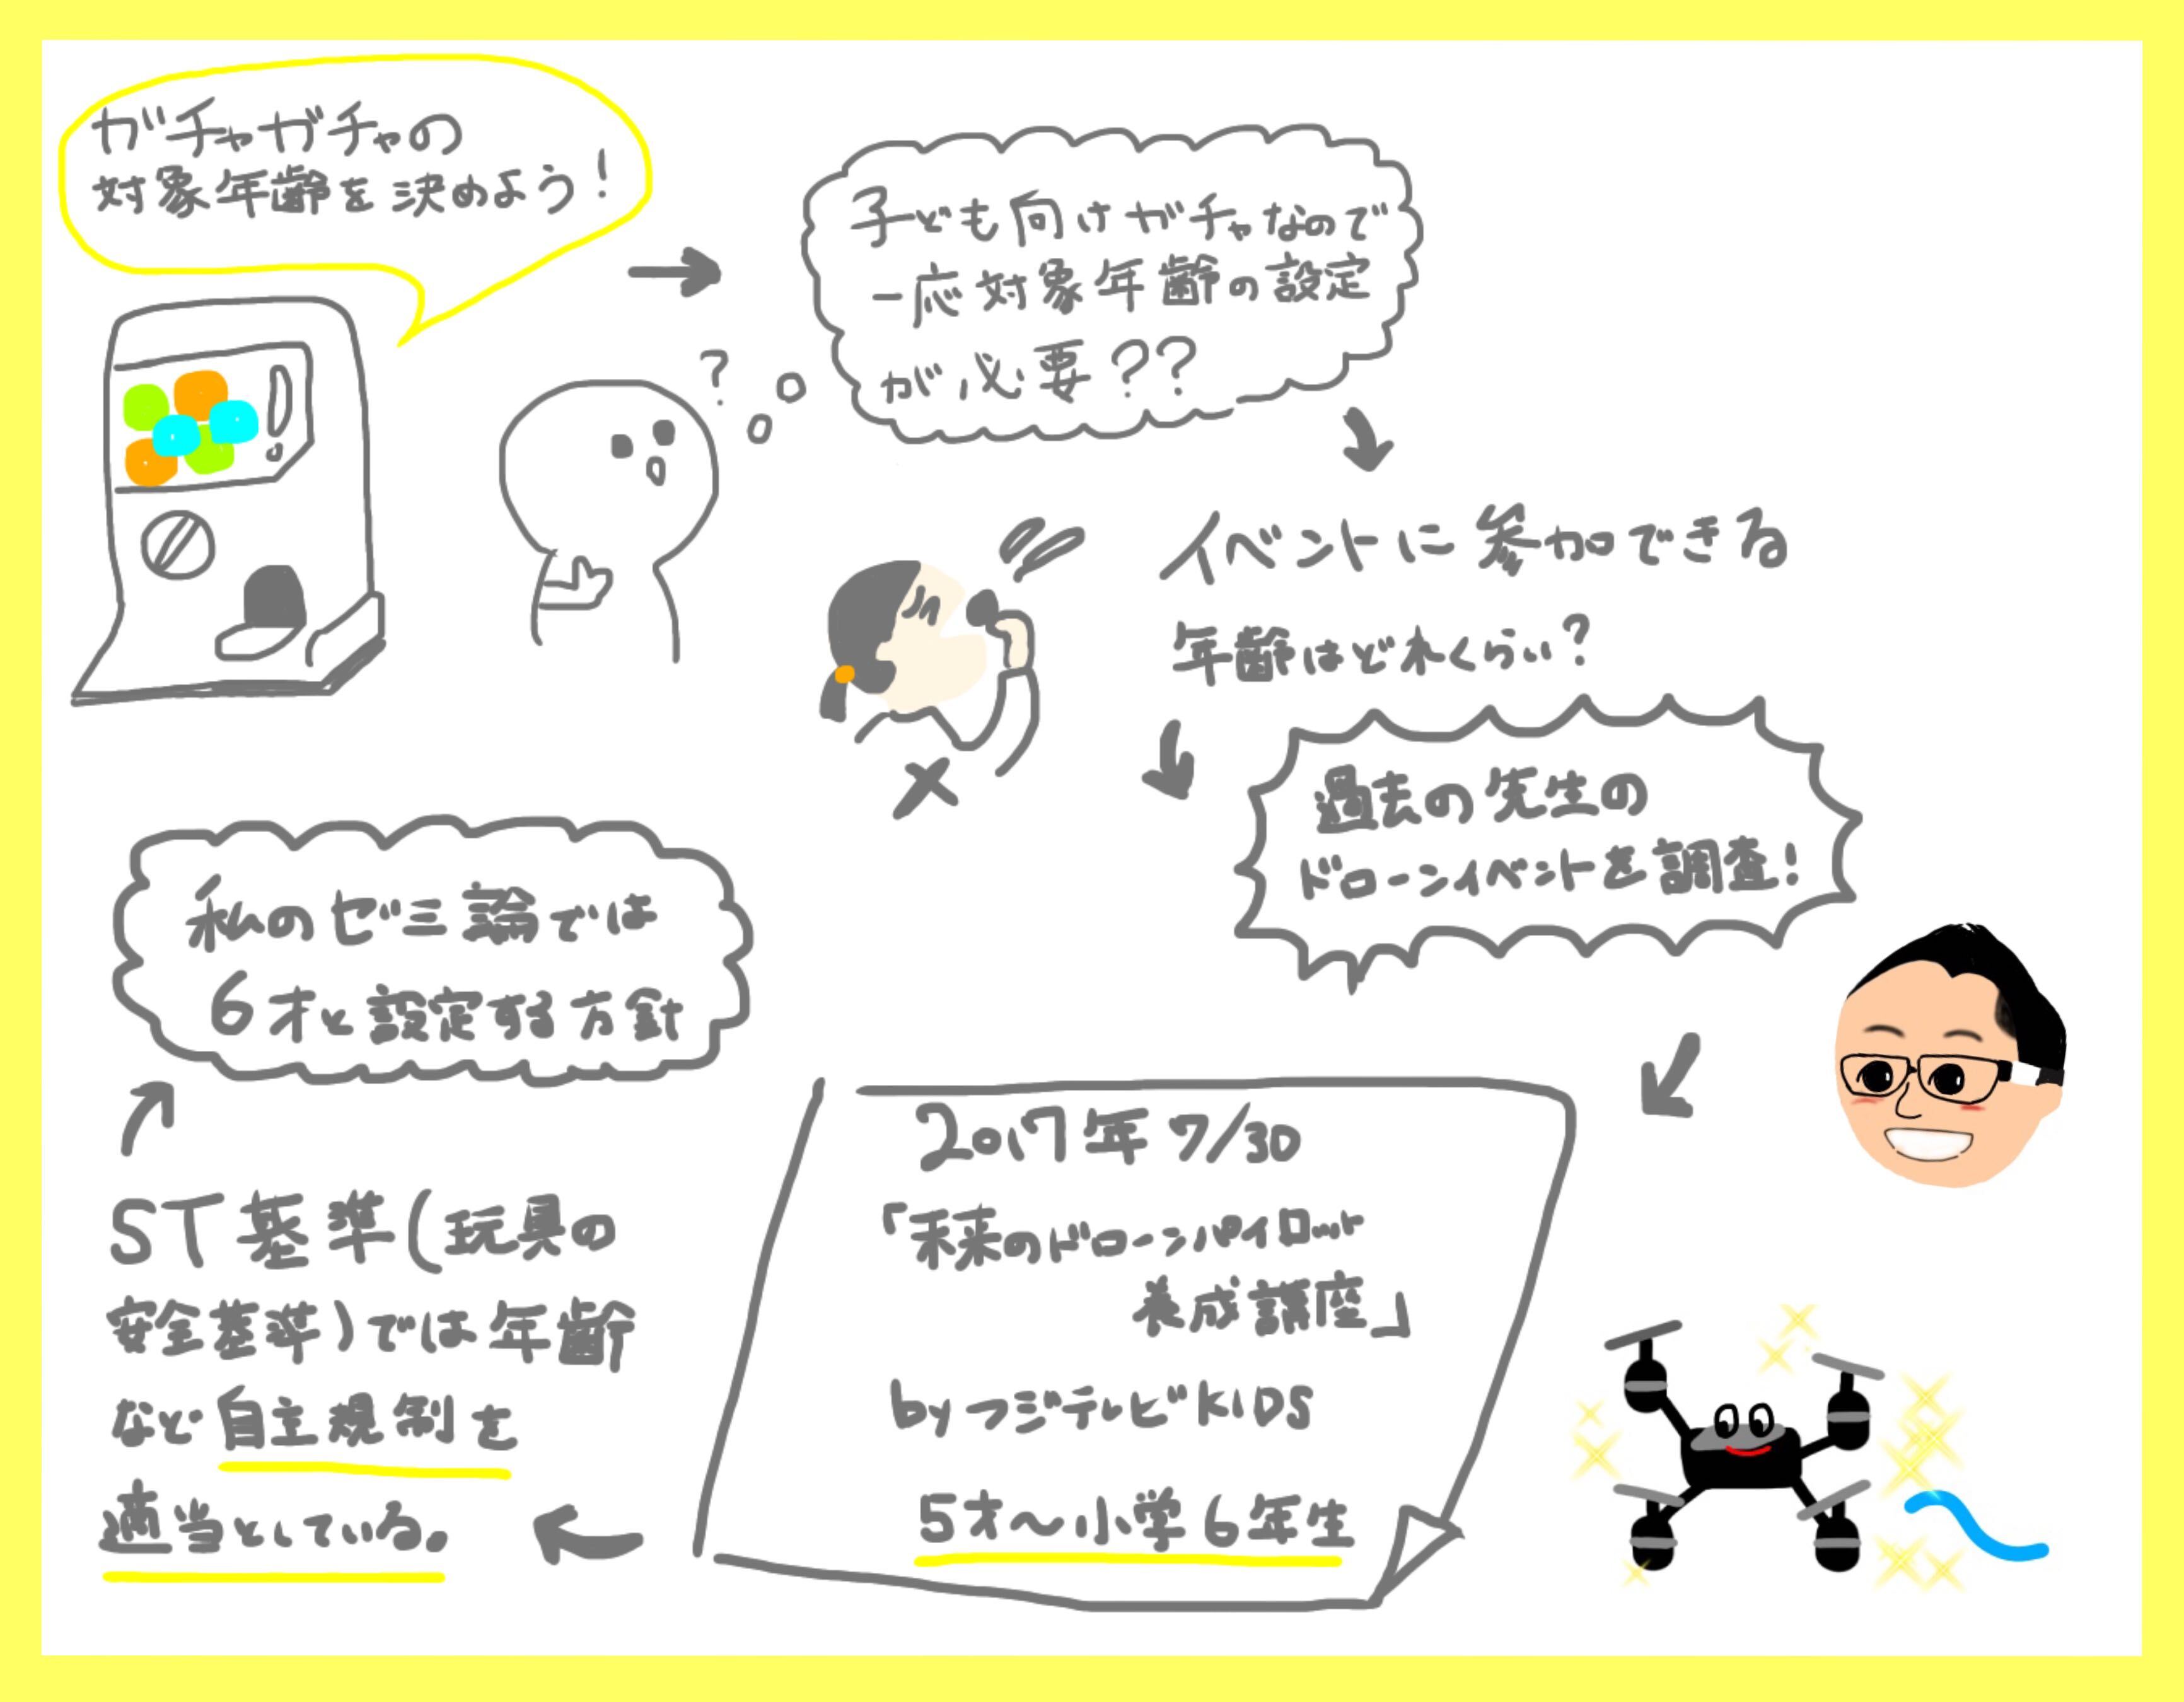 ガチャガチャの
対象年齢を決めよう!
子ども向けガチャなので
一応対象年齢の設定
が必要??
?
イベントに参加できる
年齢はどれくらい?
過去の先生の
ドローンイベントを調査!
2017年7/30
「未来のドローンパイロット
養成講座」
byフジテレビKIDS
5才〜小学6年生
ST基準(玩具の
安全基準)では年齢
など自主規制を
適当としている。
私のゼミ論では
6才と設定する方針